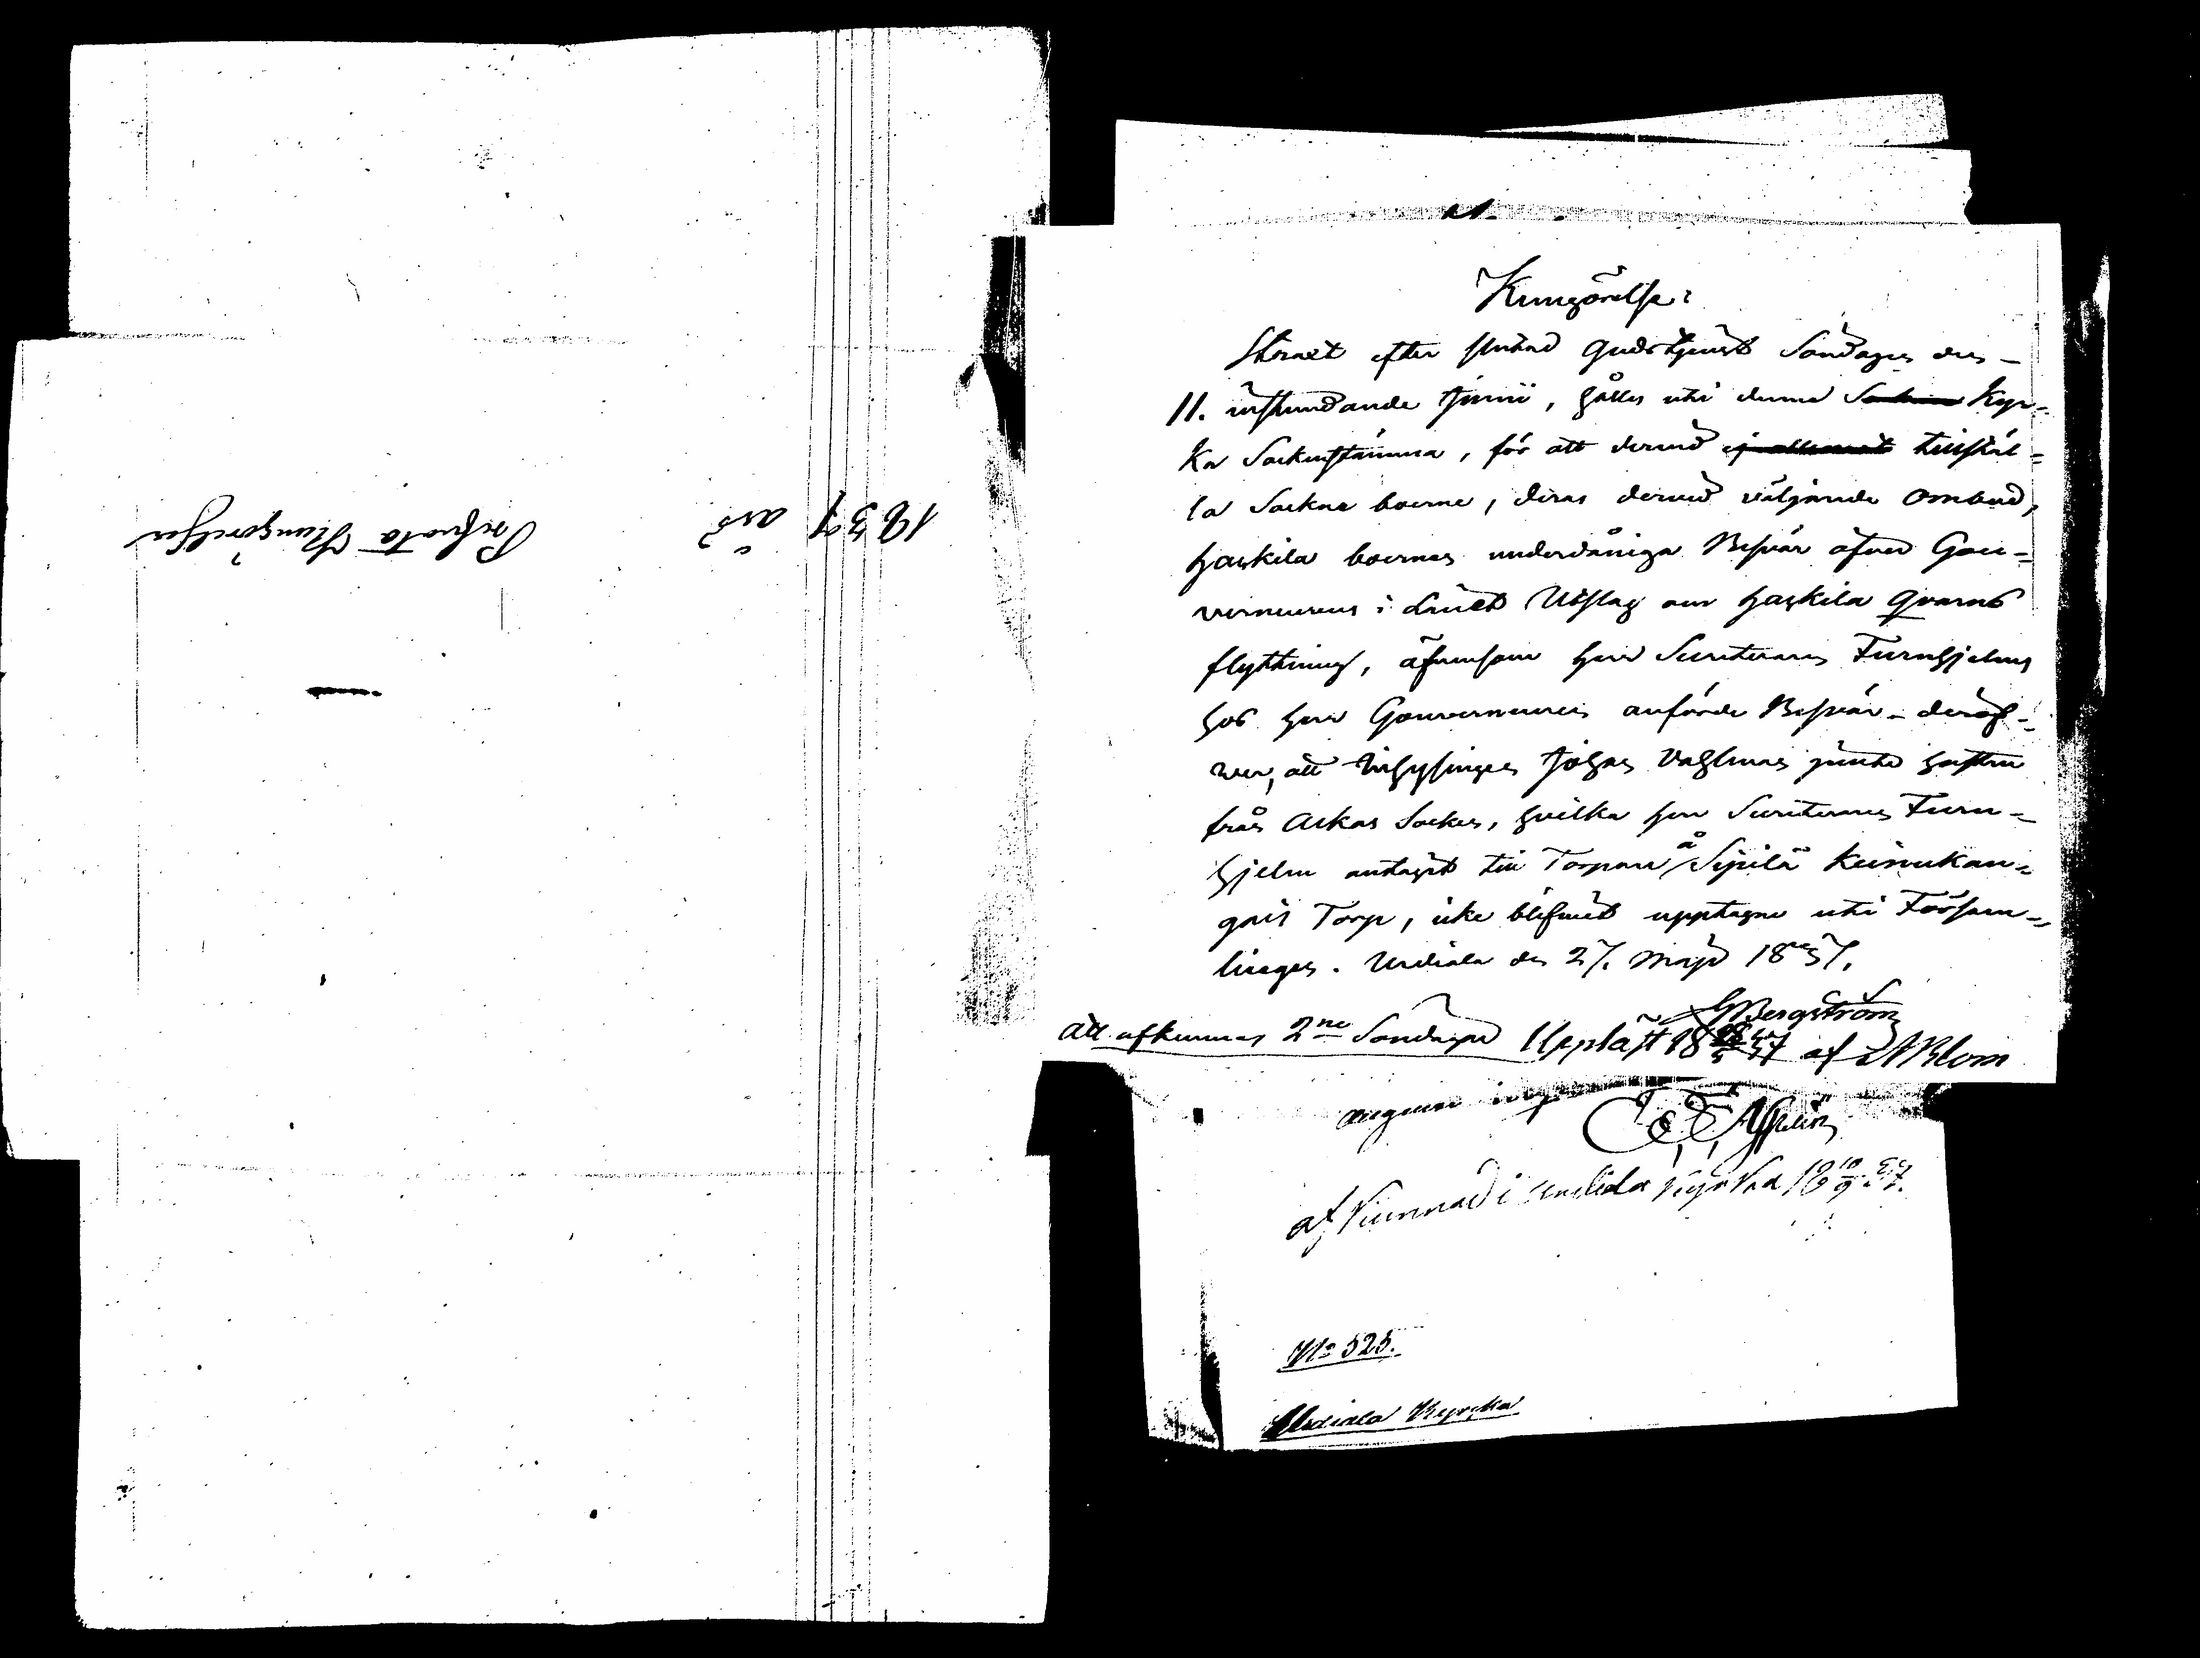 1837
års
Privata Kungörelser
Kungörelse:
Straxt efter slutad Gudstjenst Söndagen den
11. instundande Junii, hålles uti denne Kyr-
ka Sockenstämma, för att dervid tillstäl-
la Sockne boerne, deras dervid väljande Ombud,
Haskila boernes underdåniga Besvär öfver Gou-
verneurens i Länet Utslag om Haskila Qvarns
flyttning, äfvensom Herr Secreterare Furuhjelms
hos Herr Gouverneuren anförde Besvär deröf-
wer, att Inhysingen Johan Vahlman jemte hustru
från Ackas Socken, hvilka Herr Secreteraren Furu-
hjelm antagit till Torpare å Sipilä Keinukan-
gais Torp, icke blifvit upptagne uti Försam-
lingen. Urdiala den 27. Maji 1837.
G Bergström
Att afkunnas 2ne Söndagar Uppläst 18 37 af Blom
afkunnad i Urdiala kyrka 18 10/9 37.
No 525.
Urdiala Kyrcka